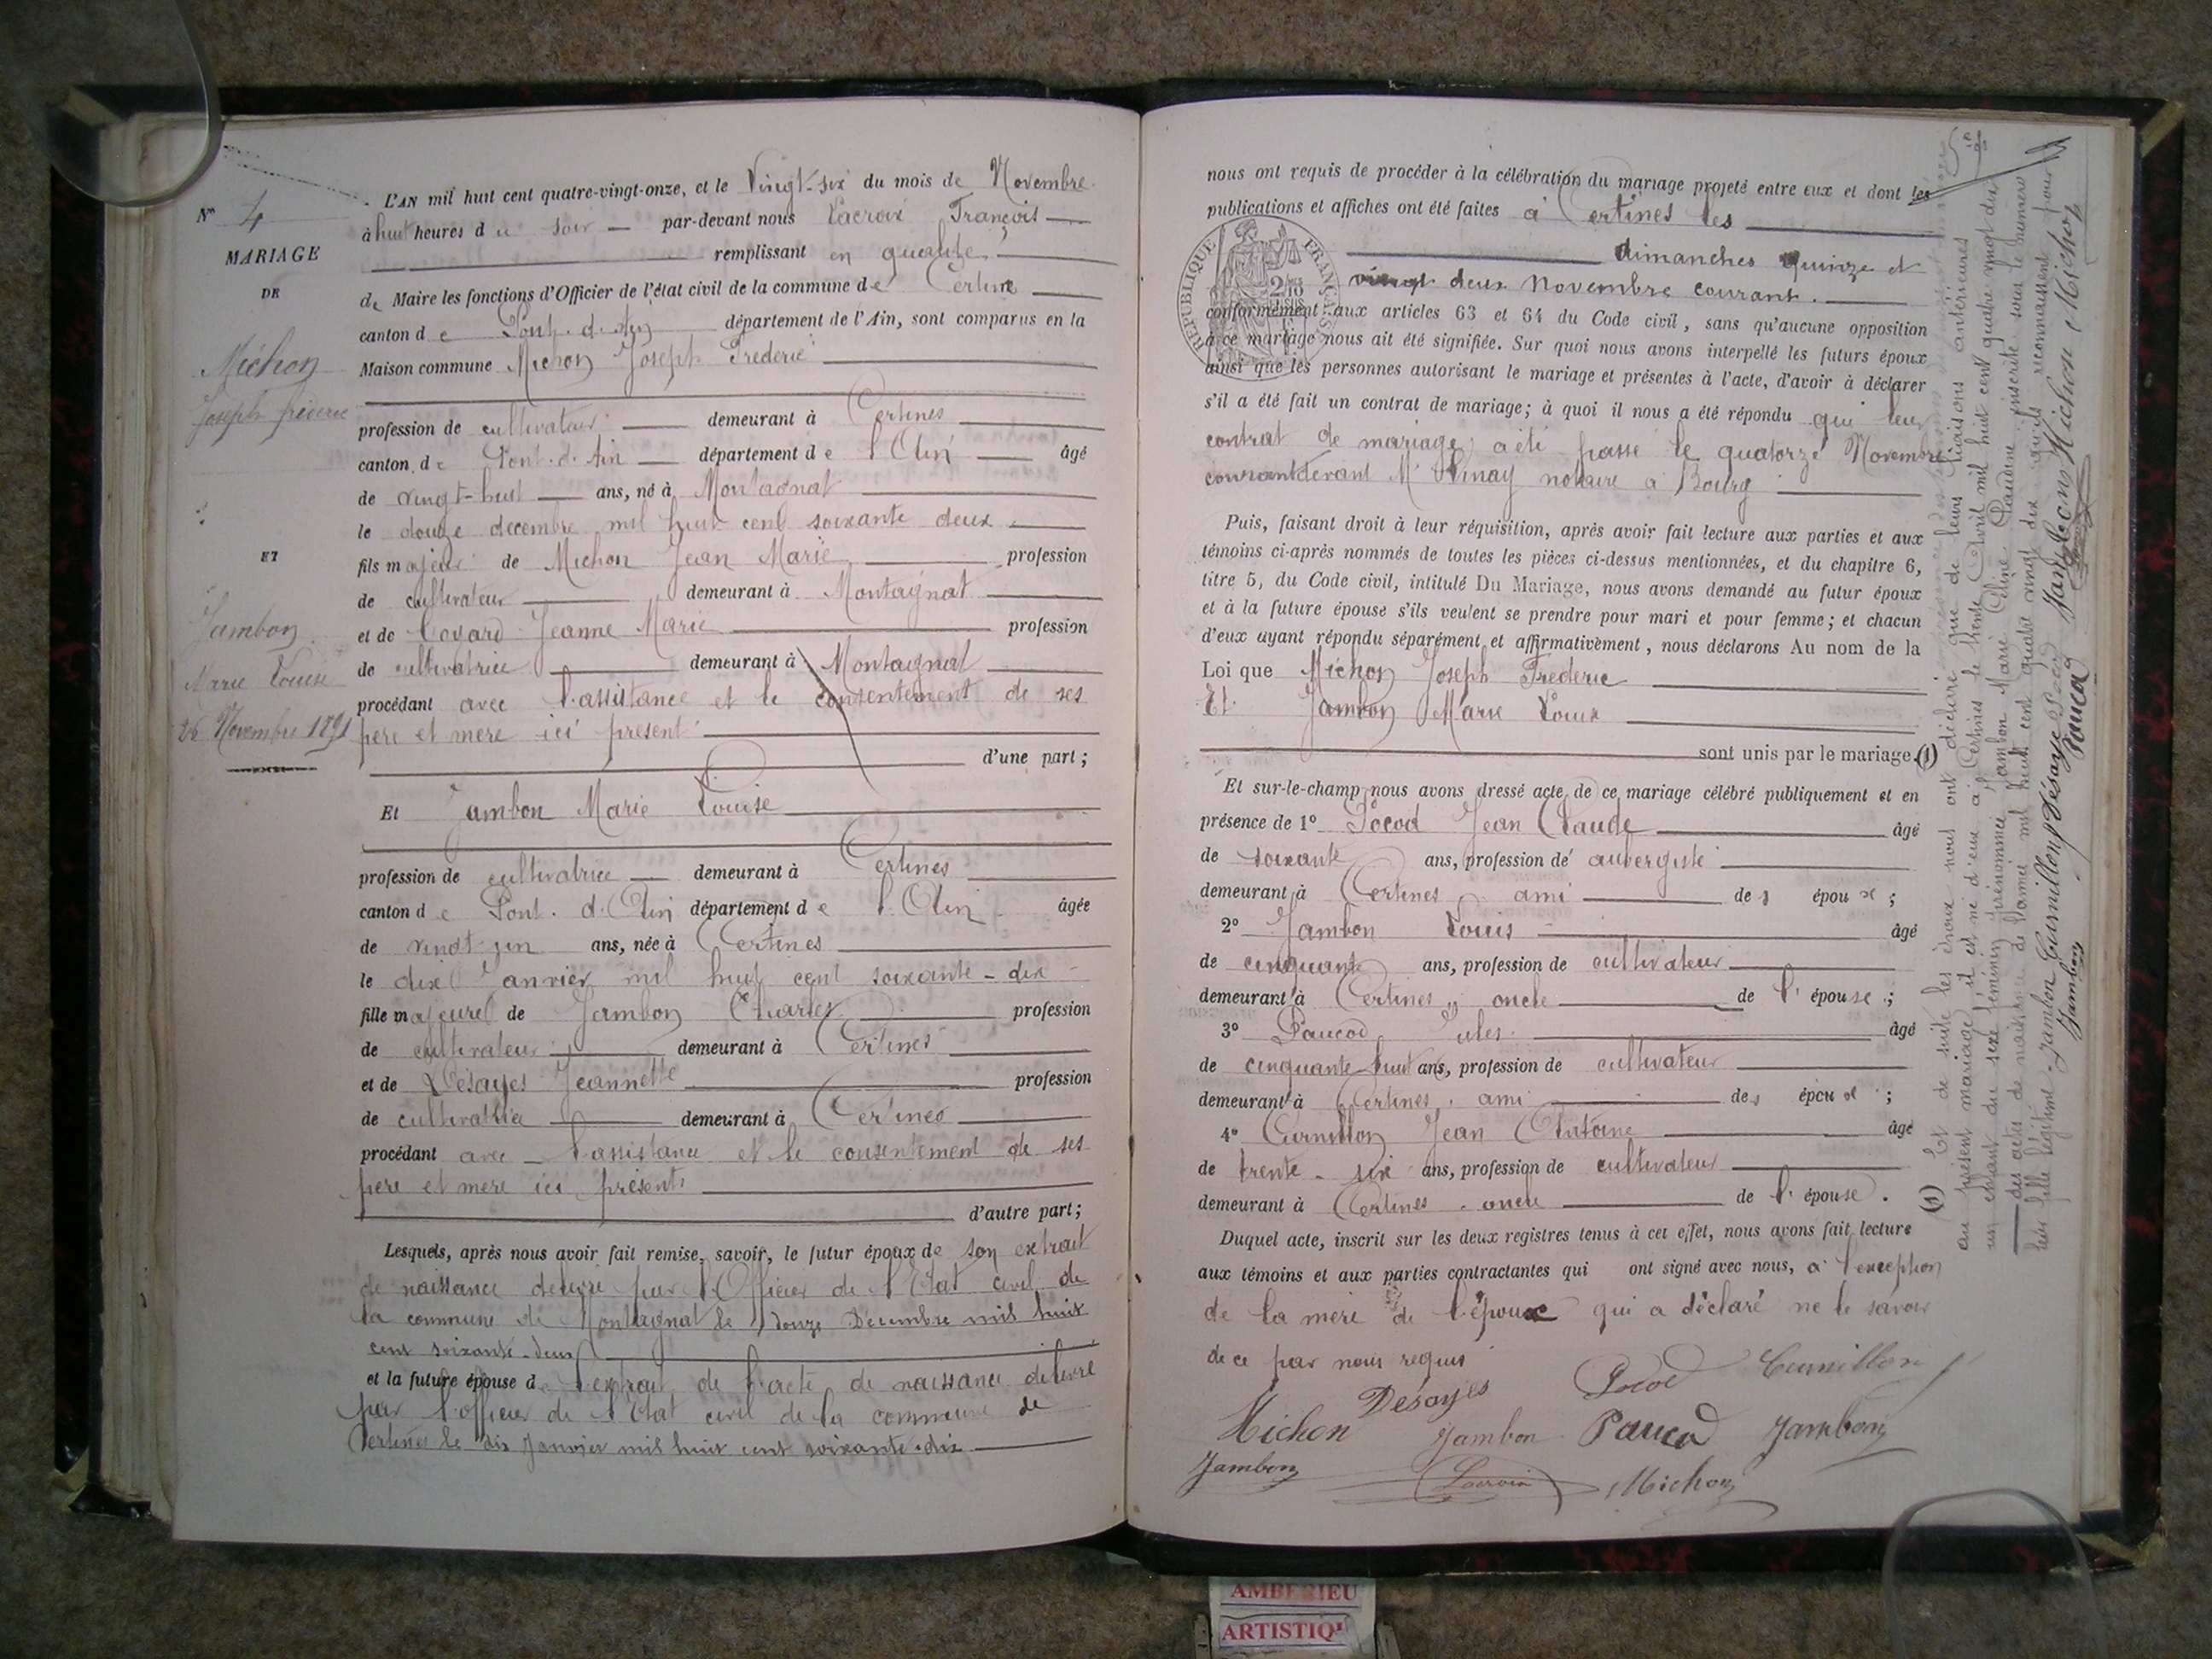 L'AN mil huit cent quatre-vingt-onze, et le Vingt-six du mois de Novembre
à huit heures du soir par-devant nous Lacroix François
remplissant en qualité
de Maire les fonctions d'Officier de l'état civil de la commune de Certines
canton de Pont-d'Ain département de l'Ain, sont comparus en la
Maison commune Michon Joseph Frédéric
profession de cultivateur demeurant à Certines
canton de Pont-d'Ain département de l'Ain âgé
de vingt-huit ans, né à Montagnat
le douze decembre mil huit cent soixante deux
fils majeur de Michon Jean Marie profession
de cultivateur demeurant à Montagnat
et de Jeanne Marie profession
de cultivatrice demeurant à Montagnat
procédant avec l'assistance et le consentement de ses
pere et mere ici present
d'une part;
Et Jambon Marie Louise
profession de cultivatrice demeurant à Certines
canton de Pont-d'Ain département de l'Ain âgée
de vingt-un ans, née à Certines
le dix Janvier mil huit cent soixante-dix
fille majeure de Jambon Charles profession
de cultivateur demeurant à Certines
et de Desayes Jeannette profession
de cultivatrice demeurant à Certines
procédant avec l'assistance et le consentement de ses
pere et mere ici présents
d'autre part;
Lesquels, après nous avoir fait remise, savoir, le futur époux de son extrait
de naissance délivré par l'Officier de l'Etat civil de
la commune de Montagnat le douze Décembre mil huit
cent soixante-deux
et la future épouse de l'extrait de l'acte de naissance délivré
par l'officier de l'Etat civil de la commune de
Certines le dix Janvier mil huit cent soixante-dix
N° 4
MARIAGE
DE
Michon
Joseph fréderic
ET
Jambon
Marie Louise
26 Novembre 1891
nous ont requis de procéder à la célébration du mariage projeté entre eux et dont les
publications et affiches ont été faites à Certines les
dimanches quinze et
vingt deux Novembre courant.
RÉPUBLIQUE FRANÇAISE
conformément aux articles 63 et 64 du Code civil, sans qu'aucune opposition
à ce mariage nous ait été signifiée. Sur quoi nous avons interpellé les futurs époux
ainsi que les personnes autorisant le mariage et présentes à l'acte, d'avoir à déclarer
s'il a été fait un contrat de mariage; à quoi il nous a été répondu que leur
contrat de mariage a été passé le quatorze Novembre
courant devant Mᵉ notaire à Bourg
Puis, faisant droit à leur réquisition, après avoir fait lecture aux parties et aux
témoins ci-après nommés de toutes les pièces ci-dessus mentionnées, et du chapitre 6,
titre 5, du Code civil, intitulé Du Mariage, nous avons demandé au futur époux
et à la future épouse s'ils veulent se prendre pour mari et pour femme; et chacun
d'eux ayant répondu séparément et affirmativement, nous déclarons Au nom de la
Loi que Michon Joseph Frédéric
Et Jambon Marie Louise
sont unis par le mariage. (1)
Et sur-le-champ nous avons dressé acte de ce mariage célébré publiquement et en
présence de 1° Pocod Jean Claude âgé
de soixante ans, profession de aubergiste
demeurant à Certines ami des époux;
2° Jambon Louis âgé
de cinquante ans, profession de cultivateur
demeurant à Certines oncle de l'épouse;
3° Paucod Jules âgé
de cinquante huit ans, profession de cultivateur
demeurant à Certines ami des époux;
4° Curnillon Jean Antoine âgé
de trente-six ans, profession de cultivateur
demeurant à Certines oncle de l'épouse.
Duquel acte, inscrit sur les deux registres tenus à cet effet, nous avons fait lecture
aux témoins et aux parties contractantes qui ont signé avec nous, à l'exception
de la mere de l'époux qui a déclaré ne le savoir
de ce par nous requis
Desayes Pocod Curnillon
Michon Jambon Paucod Jambon
Jambon Lacroix Michon
(1) Et de suite les époux nous ont déclaré que de leurs liaisons antérieures
au présent mariage il est né d'eux à Certines le trente Avril mil huit cent quatre vingt dix
un enfant du sexe féminin prénommée Jambon Marie Céline Claudine inscrite sous le numéro
des actes de naissance de l'année mil huit cent quatre vingt dix qu'ils reconnaissent pour
leur fille légitime. Jambon Curnillon Désayes Pocod Jambon Michon Michon
Jambon Paucod
AMBERIEU
ARTISTIQ